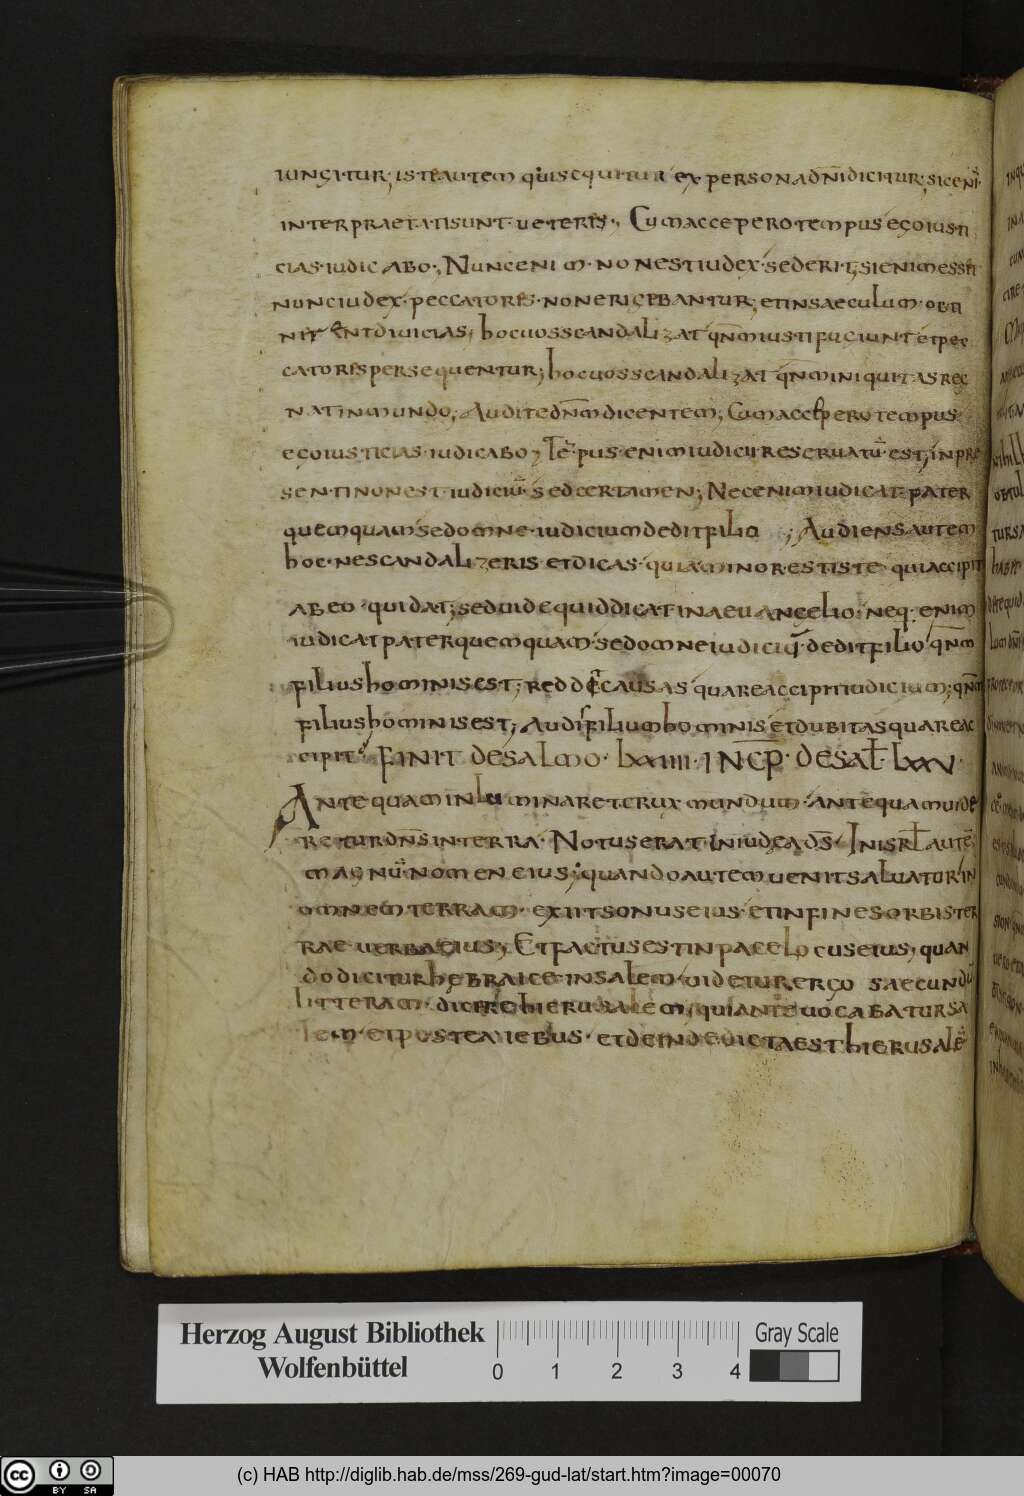 iungitur; iste autem qui sequitur ex persona dn̄i dicitur, sic enī
interpraetati sunt ueteris, Cum accepero tempus ego iusti
cias iudicabo, Nunc enim non est iudex sederit, si enim esset
nunc iudex peccatoris non erigebantur, et in saeculum obti
 diuicias, hoc uos scandalizat qn̄m iusti fugiunt et pec
catoris persequentur; hoc uos scandalizat qn̄m iniquitas reg
nat in mundo, Audite dn̄m dicentem, Cum accepero tempus
ego iusticias iudicabo; Tēpus enim iudicii reseruatū est, in pre
senti non est iudiciū sed certamen; Nec enim iudicat pater
quemquam sed omne iudicium dedit filio ; Audiens autem
hoc ne scandalizeris et dicas quia minor est iste qui accipit
ab eo qui dat; sed uide quid dicat in aeuangelio, neq. enim
iudicat pater quemquam sed omne iudiciū dedit filio qn̄m
filius hominis est; reddere causas quare accipit iudicium; qn̄m
filius hominis est; Audis filium hominis et dubitas quare ac
cipit FINIT de salmo LXXIIII INCP̄ de sał LXXV
Antequam inluminaret crux mundum antequam uide
retur dn̄s in terra Notus erat in iudea dś In isrł autē
magnū nomen eius; quando autem uenit saluatur in
omnem terram exiit sonus eius et in fines orbis ter
rae uerba eius; Et factus est in pace locus eius, quan
do dicitur hebraice in salem uidetur ergo saecundū
litteram dicere hierusalem, quia ante uocabatur sa
lem et postea iebus et deinde dicta est hierusalē
Herzog August Bibliothek
Wolfenbüttel
0 1 2 3 4
Gray Scale
cc BY SA
(c) HAB http://diglib.hab.de/mss/269-gud-lat/start.htm?image=00070